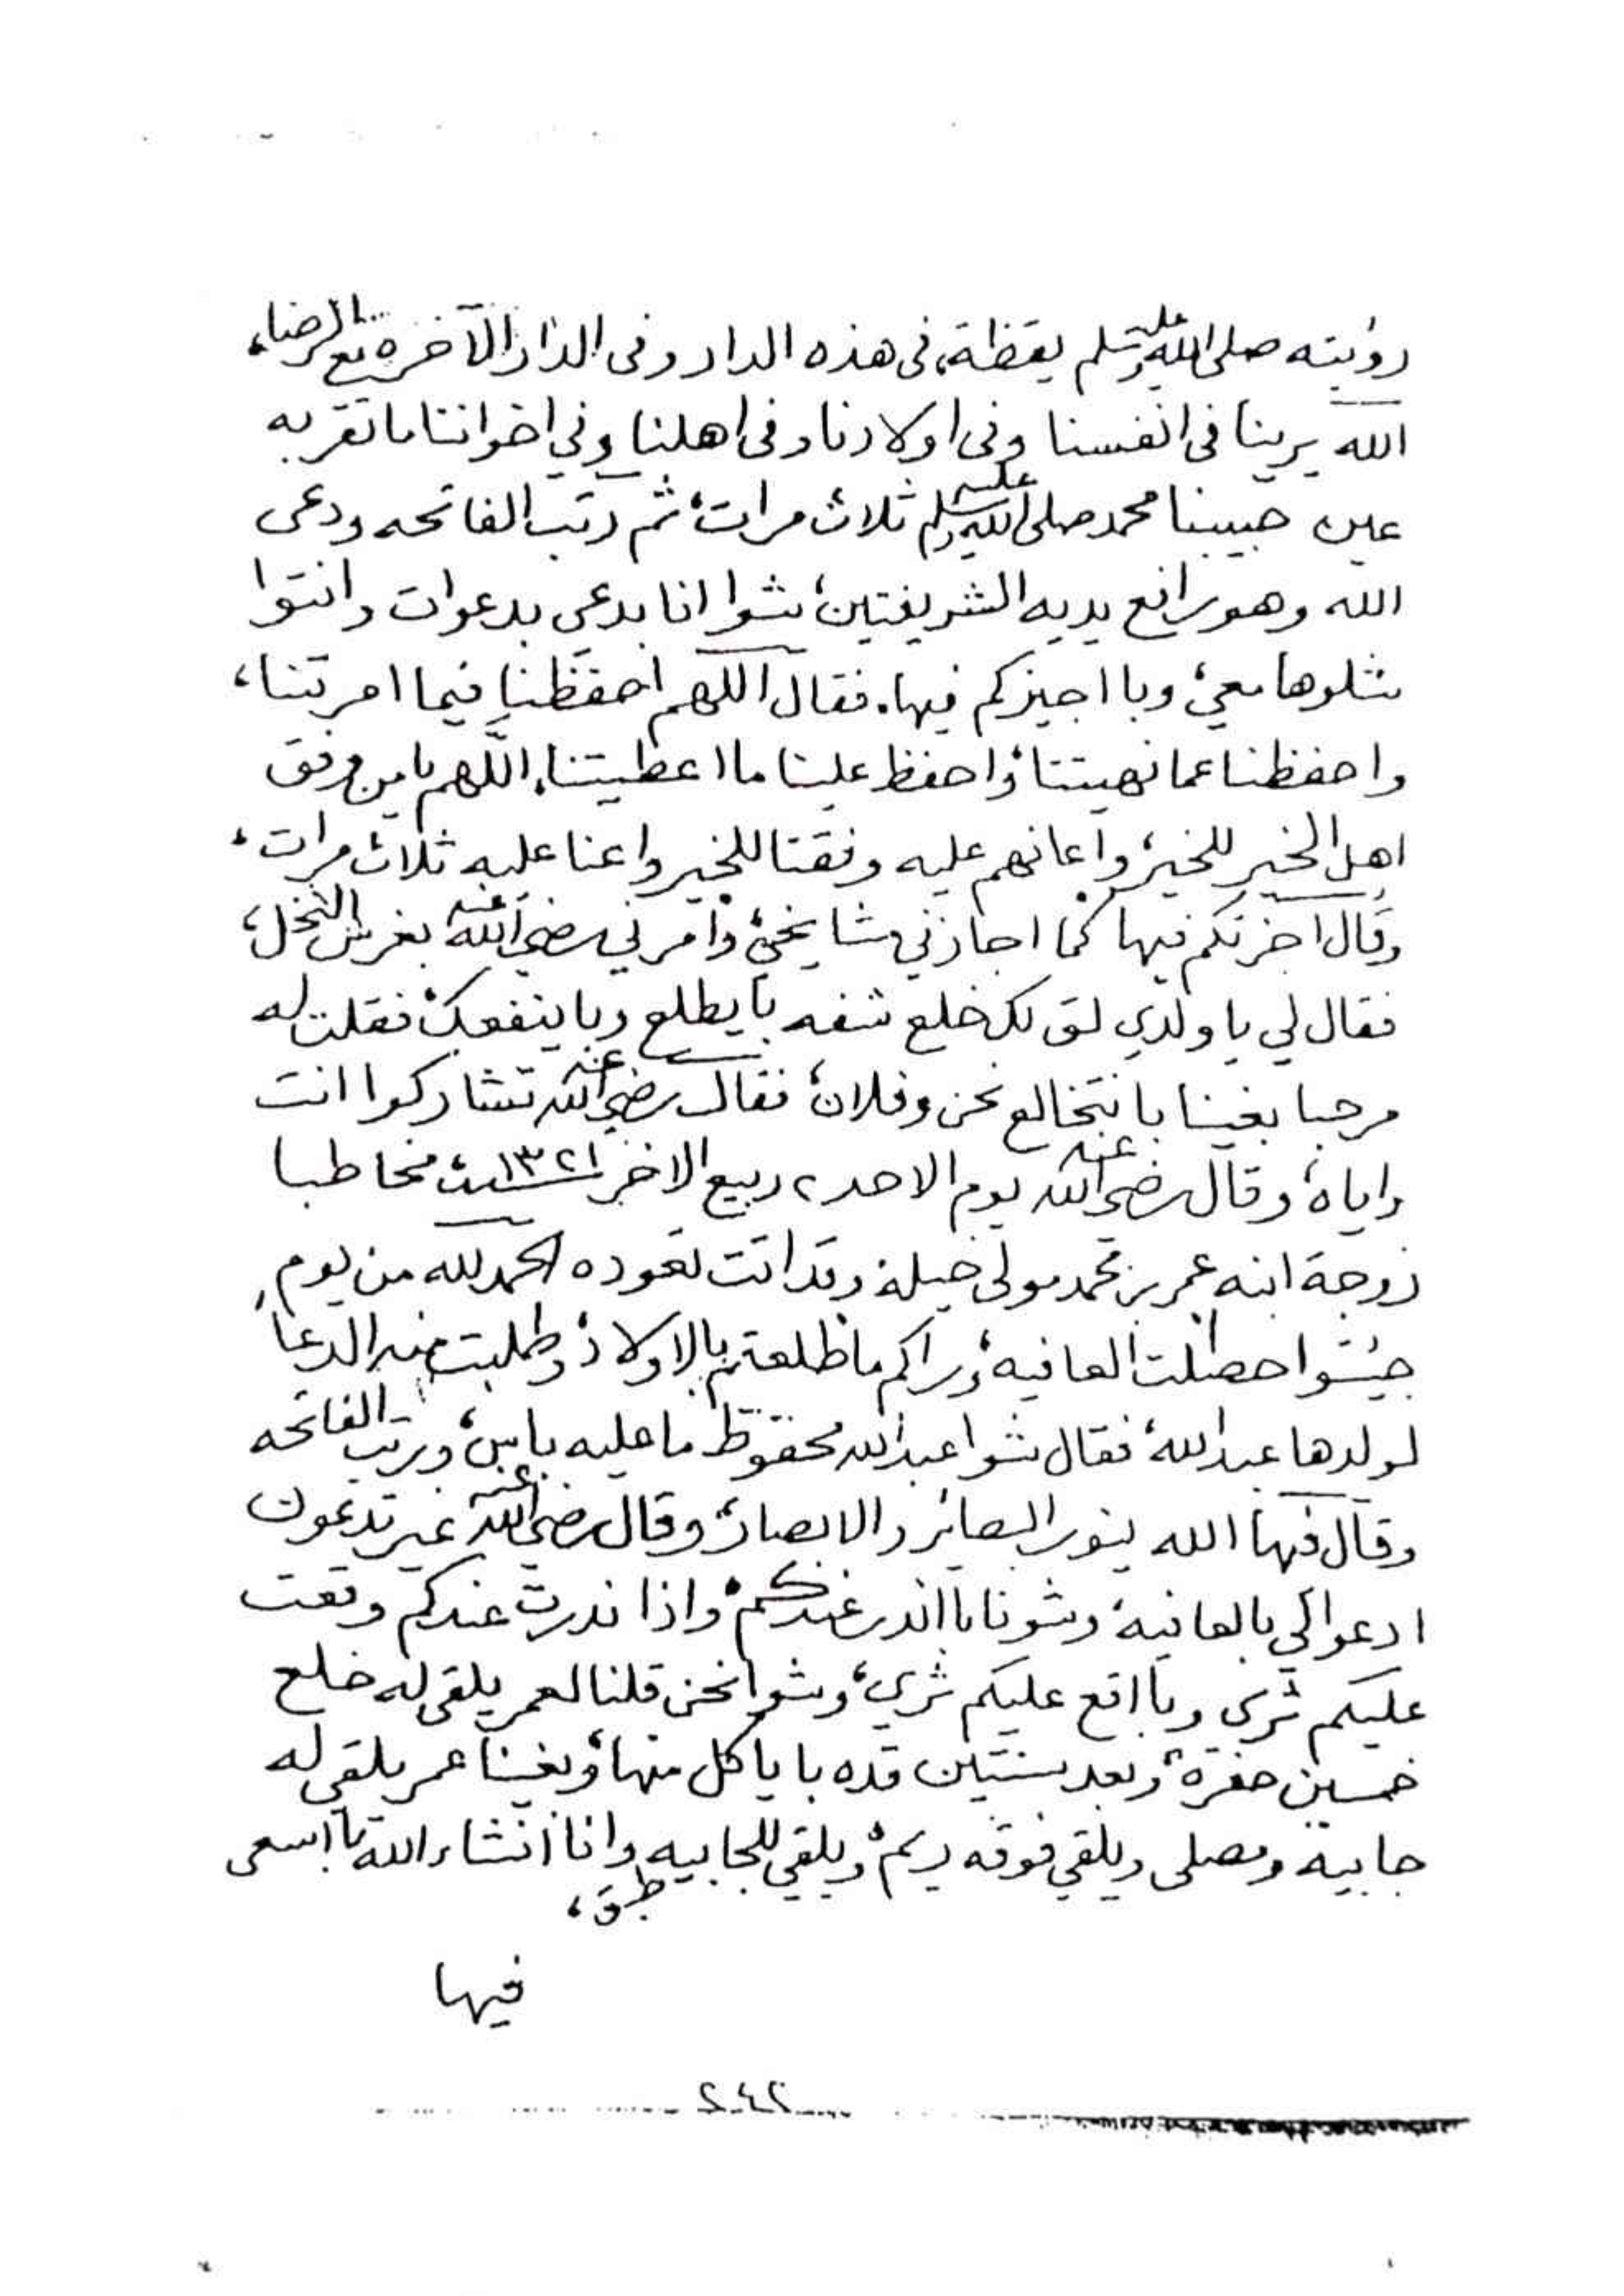 رؤيته صلى الله عليه وسلم يقظة، في هذه الدار وفي الدار الآخرة مع الرضا،
الله يرينا في انفسنا وفي اولادنا وفي اهلنا وفي اخواننا ما تقر به
عين حبيبنا محمد صلى الله عليه وسلم ثلاث مرات، ثم رتب الفاتحه ودعى
الله وهو رافع يديه الشريفتين، شوا انا بدعي بدعوات وانتوا
شلوها معي، وبا اجيزكم فيها. فقال اللهم احفظنا فيما امرتنا،
واحفظنا عما نهيتنا، واحفظ علينا ما اعطيتنا، اللهم يا من وفق
اهل الخير للخير، واعانهم عليه وفقنا للخير واعنا عليه ثلاث مرات،
وقال اجزتكم فيها كما اجازني مشايخي، وامرني رضي الله عنه بغرس النخل،
فقال لي يا ولدي لق لك خلع شفه با يطلع وبا ينفعك، فقلت له
مرحبا بغينا با نتخالع نحن وفلان، فقال رضي الله عنه تشاركوا انت
واياه، وقال رضي الله عنه يوم الاحد ٢ ربيع الاخر سنة ١٣٢١ مخاطبا
زوجة ابنه عمر بن محمد مولى خيلة وقد اتت تعوده الحمد لله من يوم
جيتوا حصلت العافيه، وراكم ما طلعتم بالاولاد، وطلبت منه الدعا
لولدها عبدالله، فقال شوا عبدالله محفوظ ما عليه باس، ورتب الفاتحه
وقال فيها الله ينور البصائر والابصار، وقال رضي الله عنه غير تدعون
ادعوا لي بالعافية، وشونا با اندر عندكم، واذا ندرت عندكم وقعت
عليكم ثري وبا اقع عليكم ثري، وشوا نحن قلنا لعمر يلقي له خلع
خمسين حفرة، وبعد سنتين قده با ياكل منها، وبغينا عمر يلقي له
جابية ومصلى ويلقي فوقه ريم، ويلقي للجابيه طرق، وانا انشاء الله با اسعى
فيها
٢٤٢